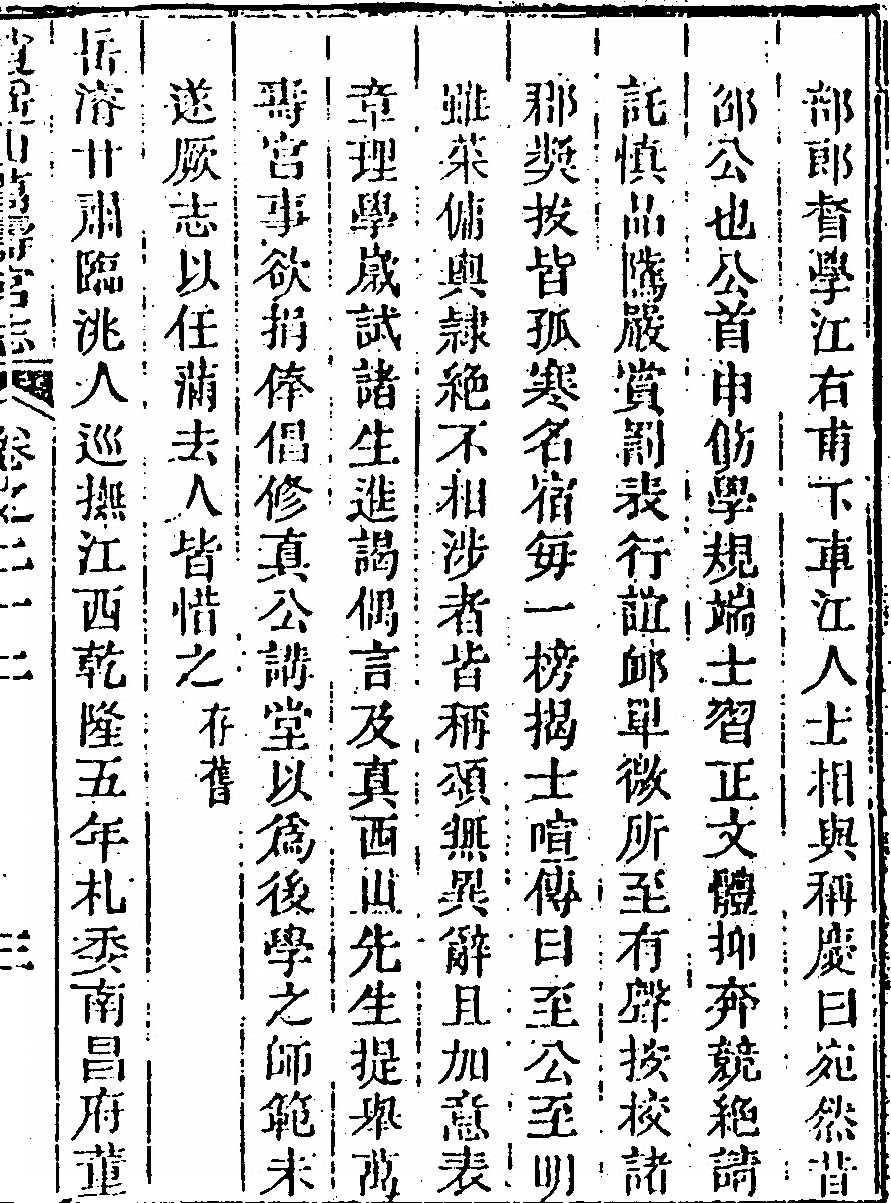 部郎督學江右甫下車江人士相與稱慶曰宛然昔
邵公也公首申飭學規端士習正文體抑奔競絕請
託慎品隲嚴賞罰表行誼䘏卑微所至有聲按校諸
郡奬拔皆孤寒名宿每一榜揭士喧傳曰至公至明
雖菜傭輿隷絕不相涉者皆稱頌無異辭且加意表
章理學歲試諸生進謁偶言及真西山先生提舉萬
壽宫事欲捐俸倡修真公講堂以爲後學之師範未
遂厥志以任滿去人皆惜之存舊
岳濬甘肅臨洮人巡撫江西乾隆五年札委南昌府董
逍遥山萬壽宫志 卷之二十二 三